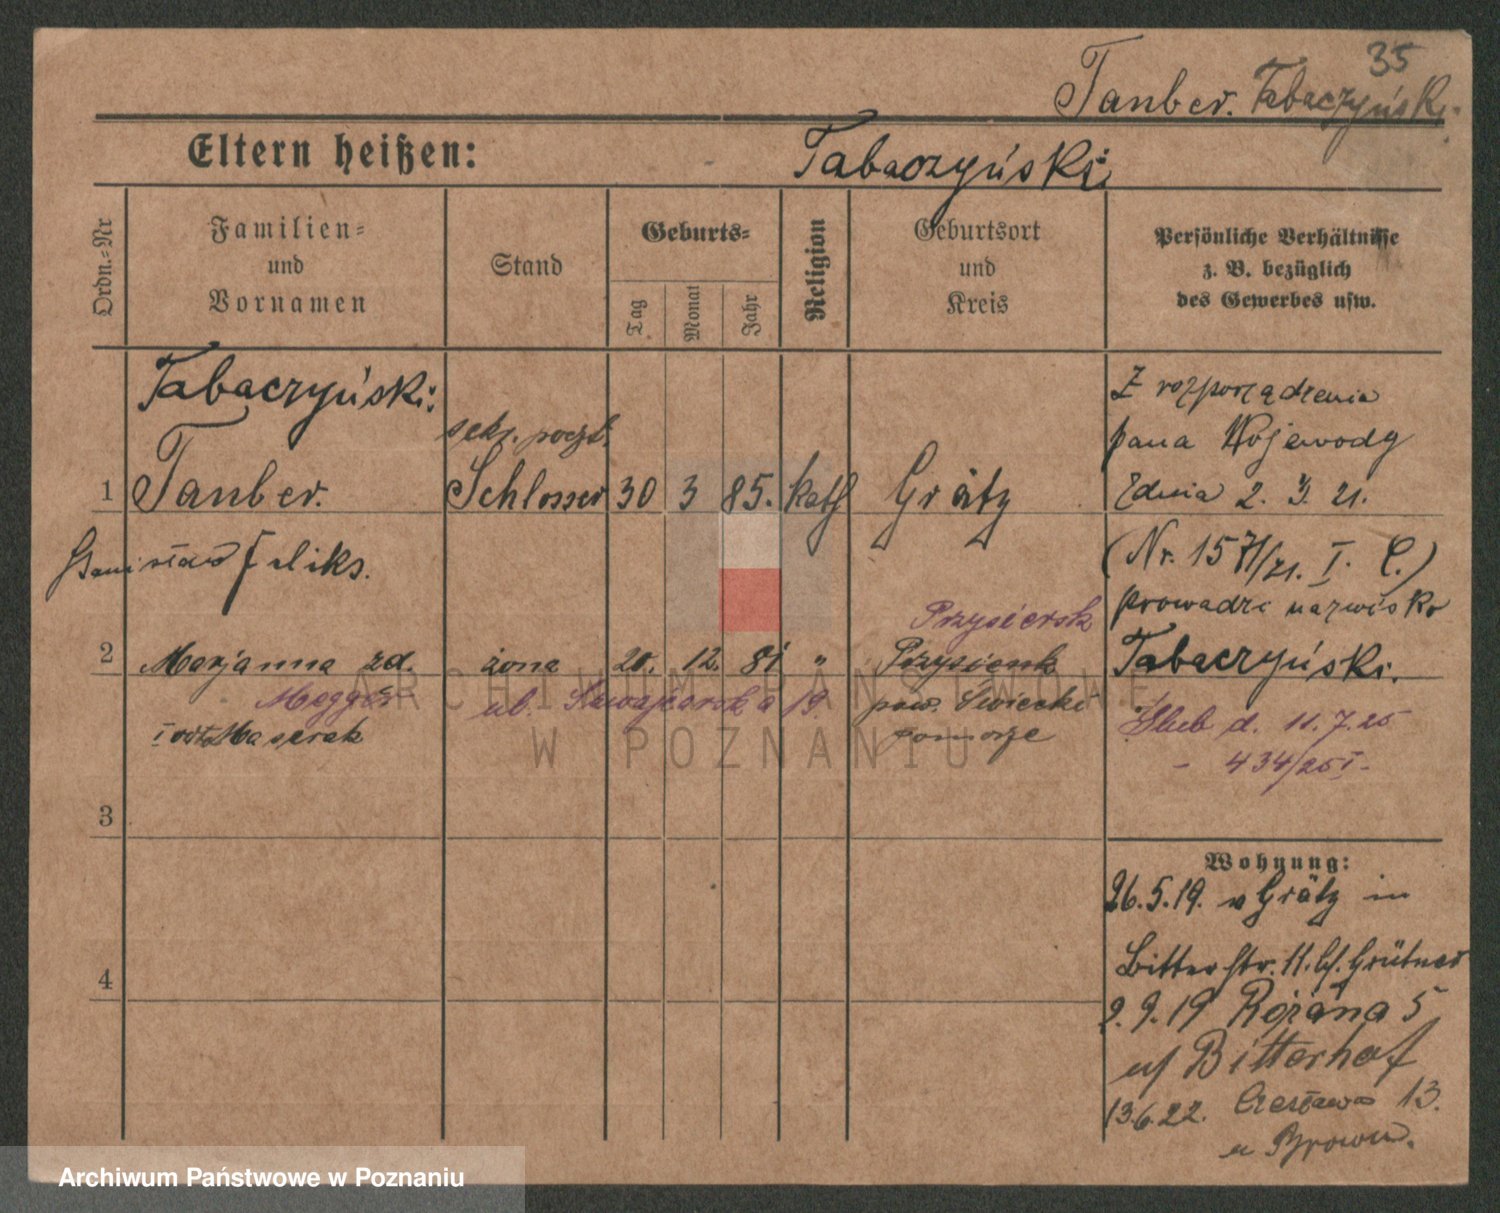 35
Tauber. Tabaczyński.
Eltern heißen: Tabaczyński
Ordn.-Nr
Familien-
und
Vornamen
Stand
Geburts-
Tag
Monat
Jahr
Religion
Geburtsort
und
Kreis
Persönliche Verhältnisse
z. B. bezüglich
des Gewerbes usw.
Tabaczyński
sekr. poczt.
1 Tauber. Schlosser 30 3 85. kath Grätz
Stanisław Feliks.
Przysiersk
2 Marjanna zd. żona 20. 12. 81 "
Megger ul. Szwajcarska 19. pow. Świecki
Maserak pomorze
3
4
Z rozporządzenia
pana Wojewody
z dnia 2. 3. 21.
(Nr. 1571/21. I. C.)
prowadzi nazwisko
Tabaczyński.
Ślub d. 11.7.25
- 434/25 I -
Wohnung:
26.5.19. v Grätz in
Bitterstr. 11. bf. Grütner
2.9.19 Różana 5
Bitterhof
13.6.22. Czesława 13.
u
ARCHIWUM PAŃSTWOWE
W POZNANIU
Archiwum Państwowe w Poznaniu